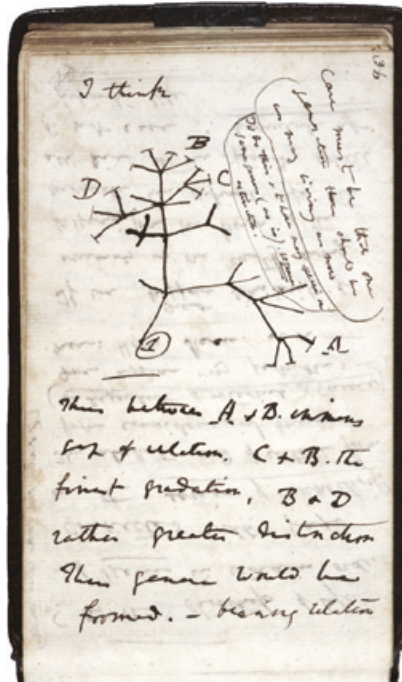 I think
36
Case must be that one
generation then should be
as many living as now
To do this & to have many species in
same genus (as is)
requires extinction.
B
D
C
1
A
Thus between A & B. immens
gap of relation. C & B. the
finest gradation, B & D
rather greater distinction
Thus genera would be
formed. — bearing relation